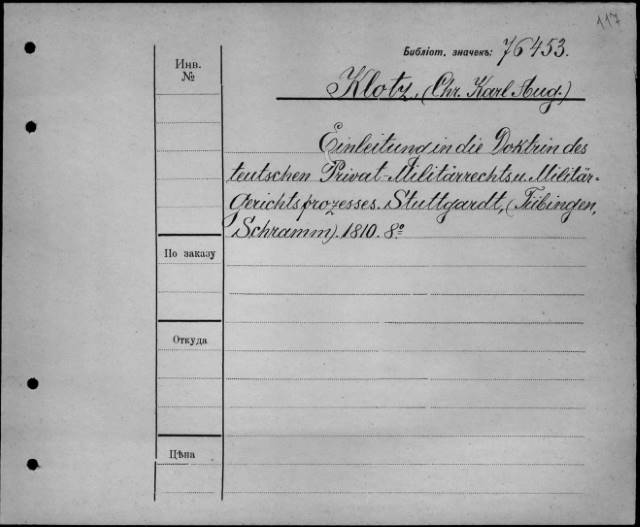 117
Библіот. значекъ: 76453.
Инв.
№
Klotz, (Chr. Karl Aug.)
Einleitung in die Doktrin des
teutschen Privat-Militärrechts u. Militär-
Gerichtsprozesses. Stuttgardt, (Tübingen,
Schramm). 1810. 8º
По заказу
Откуда
Цѣна